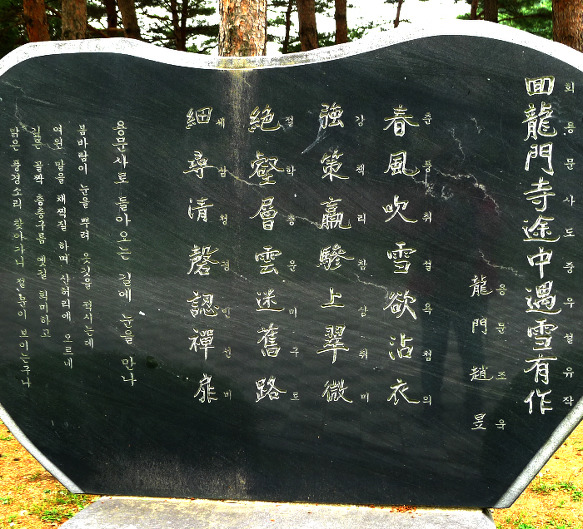 回龍門寺途中遇雪有作
회룡문사도중우설유작
龍門 趙昱
용문 조욱
春風吹雪欲沾衣
춘풍취설욕첨의
強策羸驂上翠微
강책리참상취미
絶壑層雲迷舊路
절학층운미구로
細尋清磬認禪扉
세심청경인선비
용문사로 돌아오는 길에 눈을 만나
봄바람이 눈을 뿌려 옷깃을 적시는데
여윈 말을 채찍질 하며 산허리에 오르네
깊은 골짝 층층구름 옛길 희미하고
맑은 풍경소리 찾아가니 절 문이 보이는구나